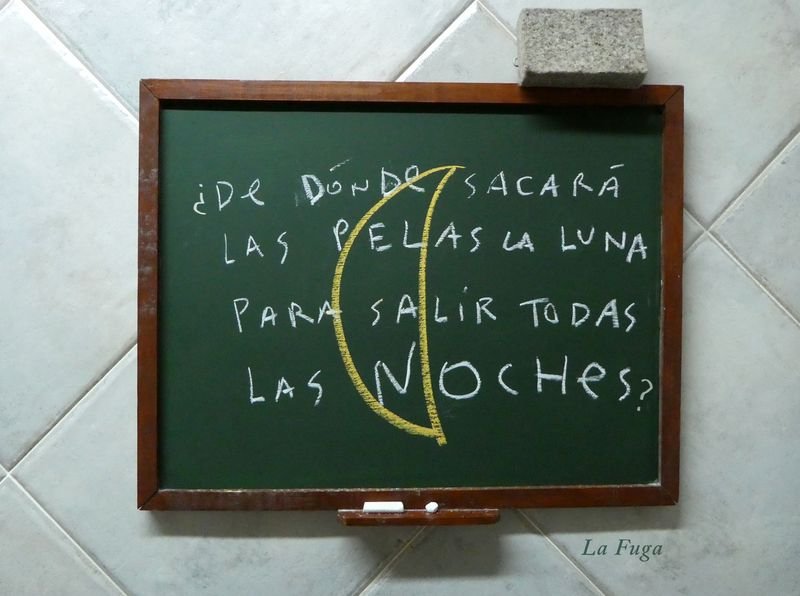 ¿De DÓNDe SACARÁ
LAS PELAS LA LUNA
PARA SALÍR TODAS
LAS NOCHeS?
La Fuga